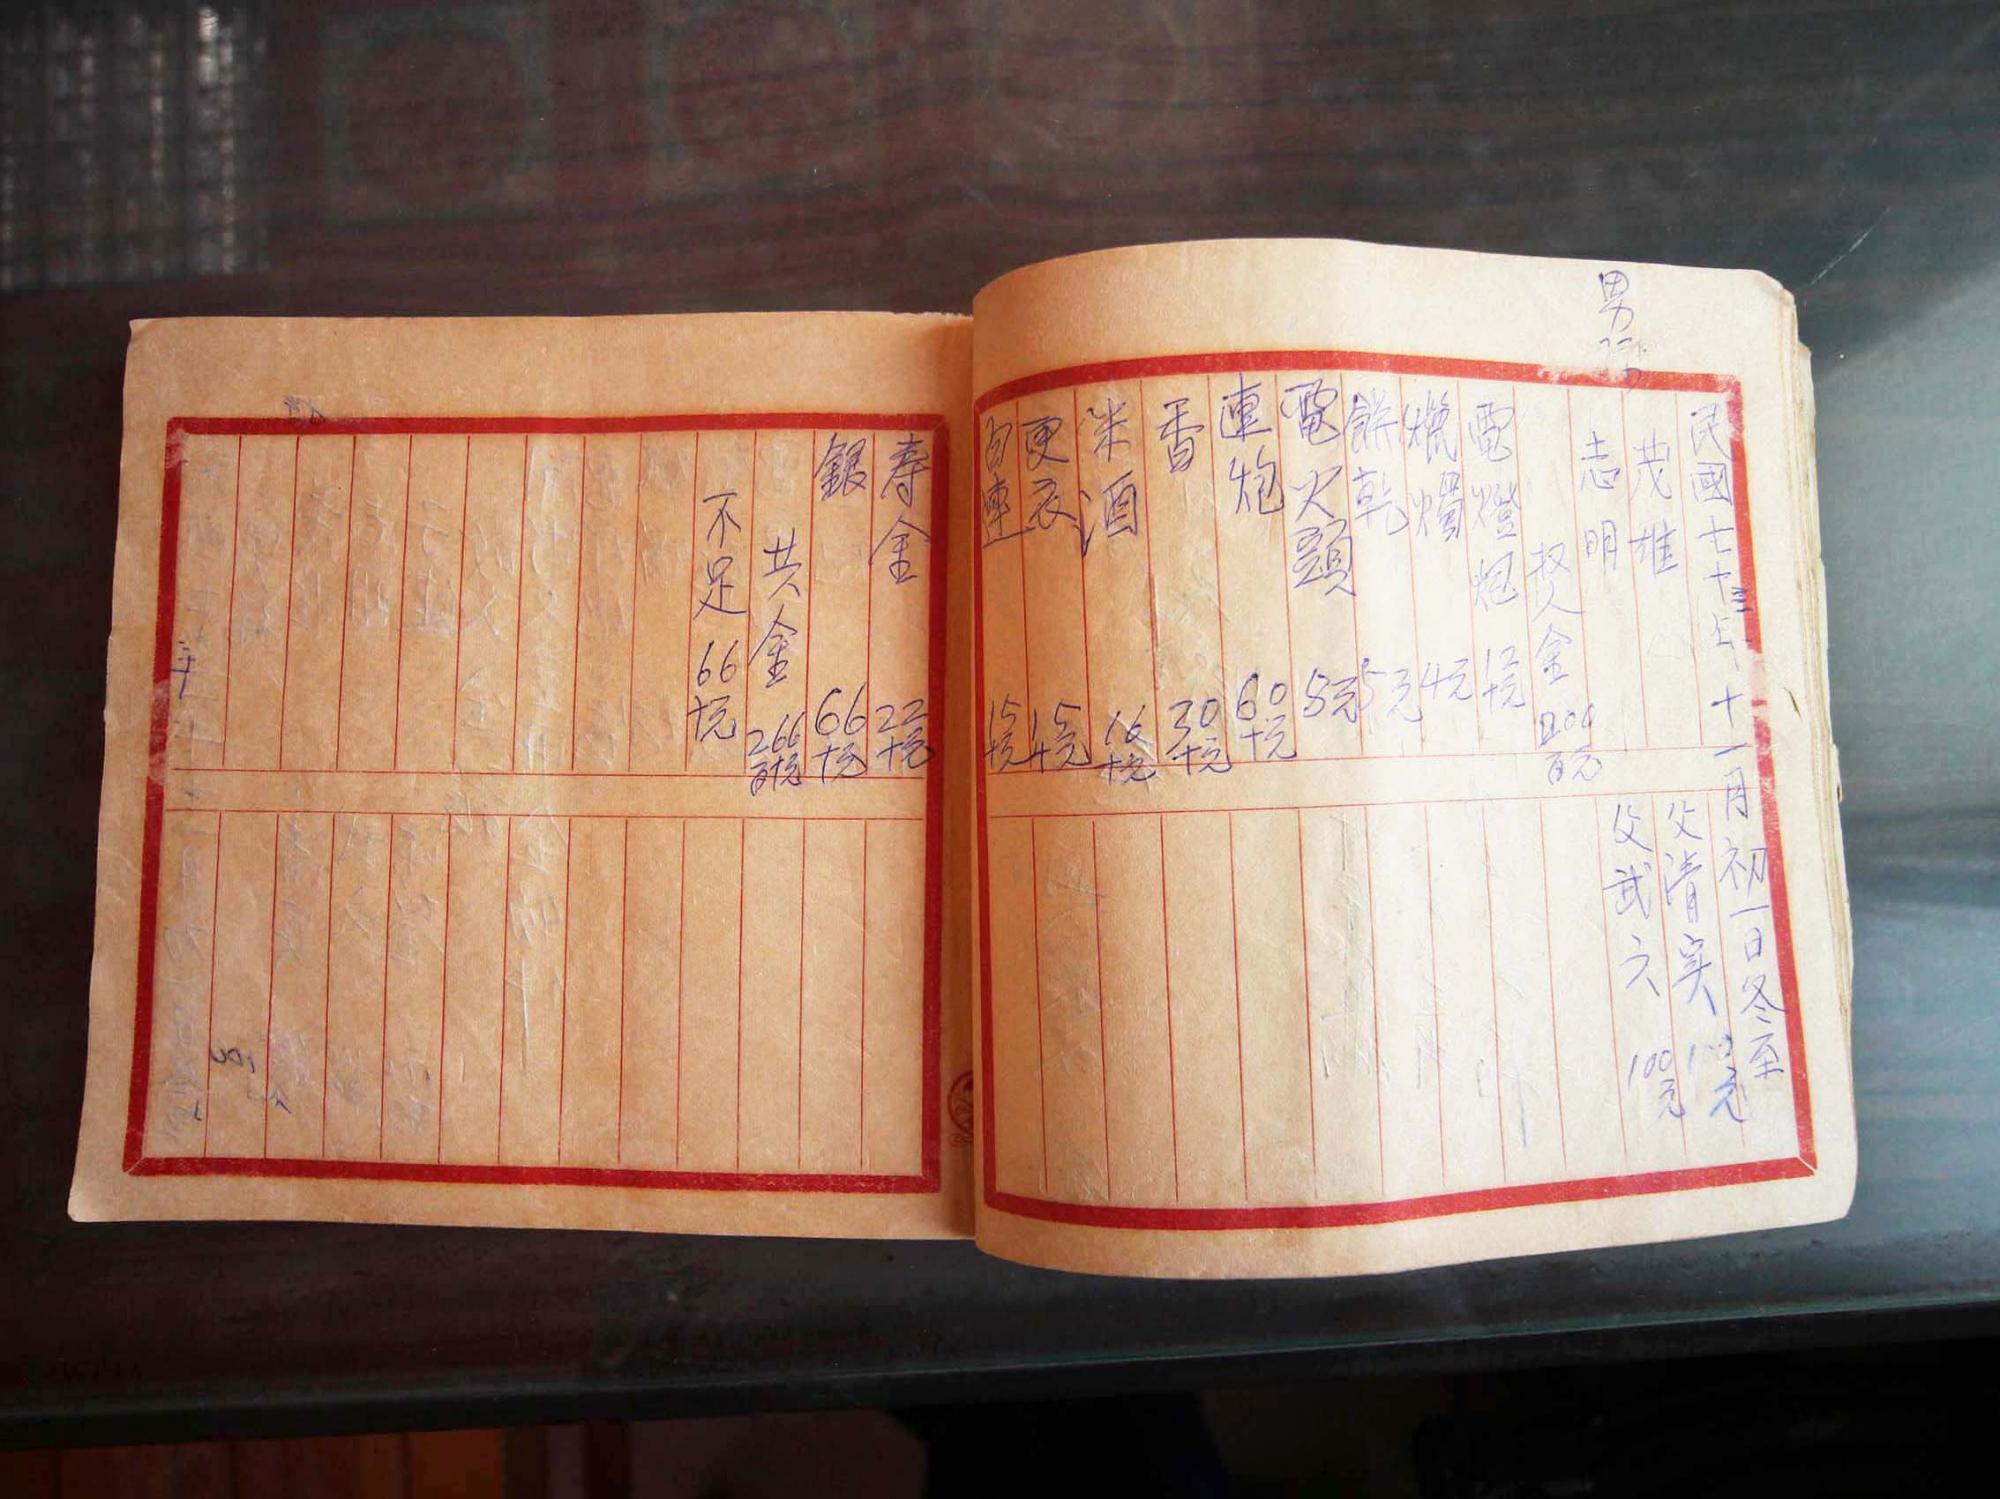 男
民國七十三年十一月初一日冬至
茂雄 父清実 100元
志明 父武六 100元
収入金 200百元
電燈炮 12十元
蠟燭 4元
餅乾 5元
電火頭 8元
連炮 60十元
香 30十元
米酒 16十元
更衣 15十元
白連 15十元
寿金 22十元
銀 66十元
共金 266百十元
不足 66十元